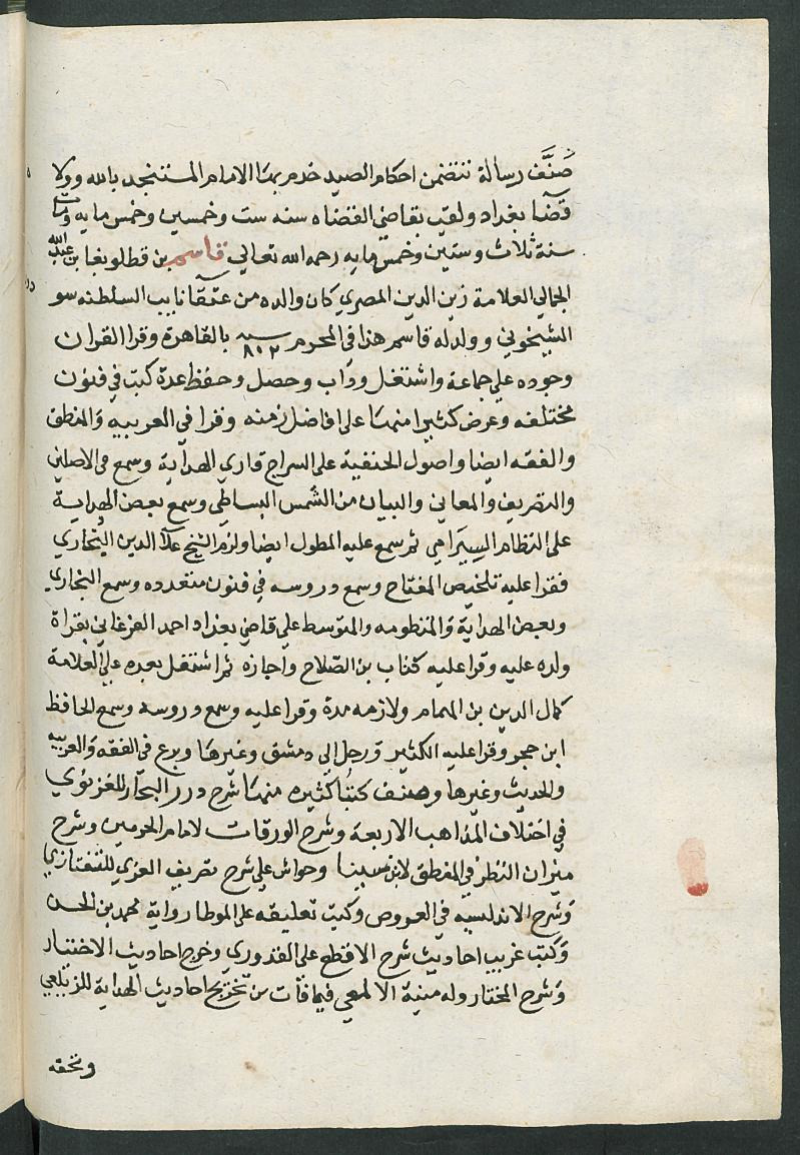 صَنَّف رسالة تتضمن احكام الصيد خدم بها الامام المستنجد بالله وولا
قضا بغداد ولقب بقاضي القضاه سنه ست وخمسين وخمس مايه ومات
سنة ثلاث وستين وخمس مايه رحمه الله تعالي قاسم بن قطلوبغا بن عبد الله
الجمالي العلامة زين الدين المصري كان والده من عتقا نايب السلطنه سو
الشيخوني وولد له قاسم هذا في المحرم سنه ٨٠٢ بالقاهرة وقرا القران
وجوده علي جماعة واشتغل وداب وحصل وحفظ عدة كتب في فنون
مختلفه وعرض كثيرا منها على افاضل زمنه وقرا في العربيه والمنطق
والفقه ايضا واصول الحنفية على السراج قاري الهداية وسمع في الاصلين
والتصريف والمعاني والبيان من الشمس البساطي وسمع بعض الهداية
على النظام السيرامي ثم سمع عليه المطول ايضا ولزم الشيخ علآ الدين البخاري
فقرا عليه تلخيص المفتاح وسمع دروسه في فنون متعدده وسمع البخاري
وبعض الهداية والمنظومه والمتوسط علي قاضي بغداد احمد الفرغاني بقراة
ولده عليه وقرا عليه كتاب بن الصلاح واجازه ثم اشتغل بعده علي العلامة
كمال الدين بن الهمام ولازمه مدة وقرا عليه وسمع دروسه وسمع الحافظ
ابن حجر وقرا عليه الكثير ورحل الي دمشق وغيرها وبرع في الفقه والعربيه
والحديث وغيرها وصنف كتبا كثيره منها شرح درر البحار للقونوي
في اختلاف المذاهب الاربعة وشرح الورقات لامام الحرمين وشرح
ميزان النظر في المنطق لابن سينا وحواش علي شرح تصريف العزي للتفتازاني
وشرح الاندلسيه في العروض وكتب تعليقه على الموطا رواية محمد بن الحسن
وكتب غريب احاديث شرح الاقطع على القدوري وخرج احاديث الاختيار
وشرح المختار وله منية الالمعي فيما فات من تخريج احاديث الهداية للزيلعي
وتحفه